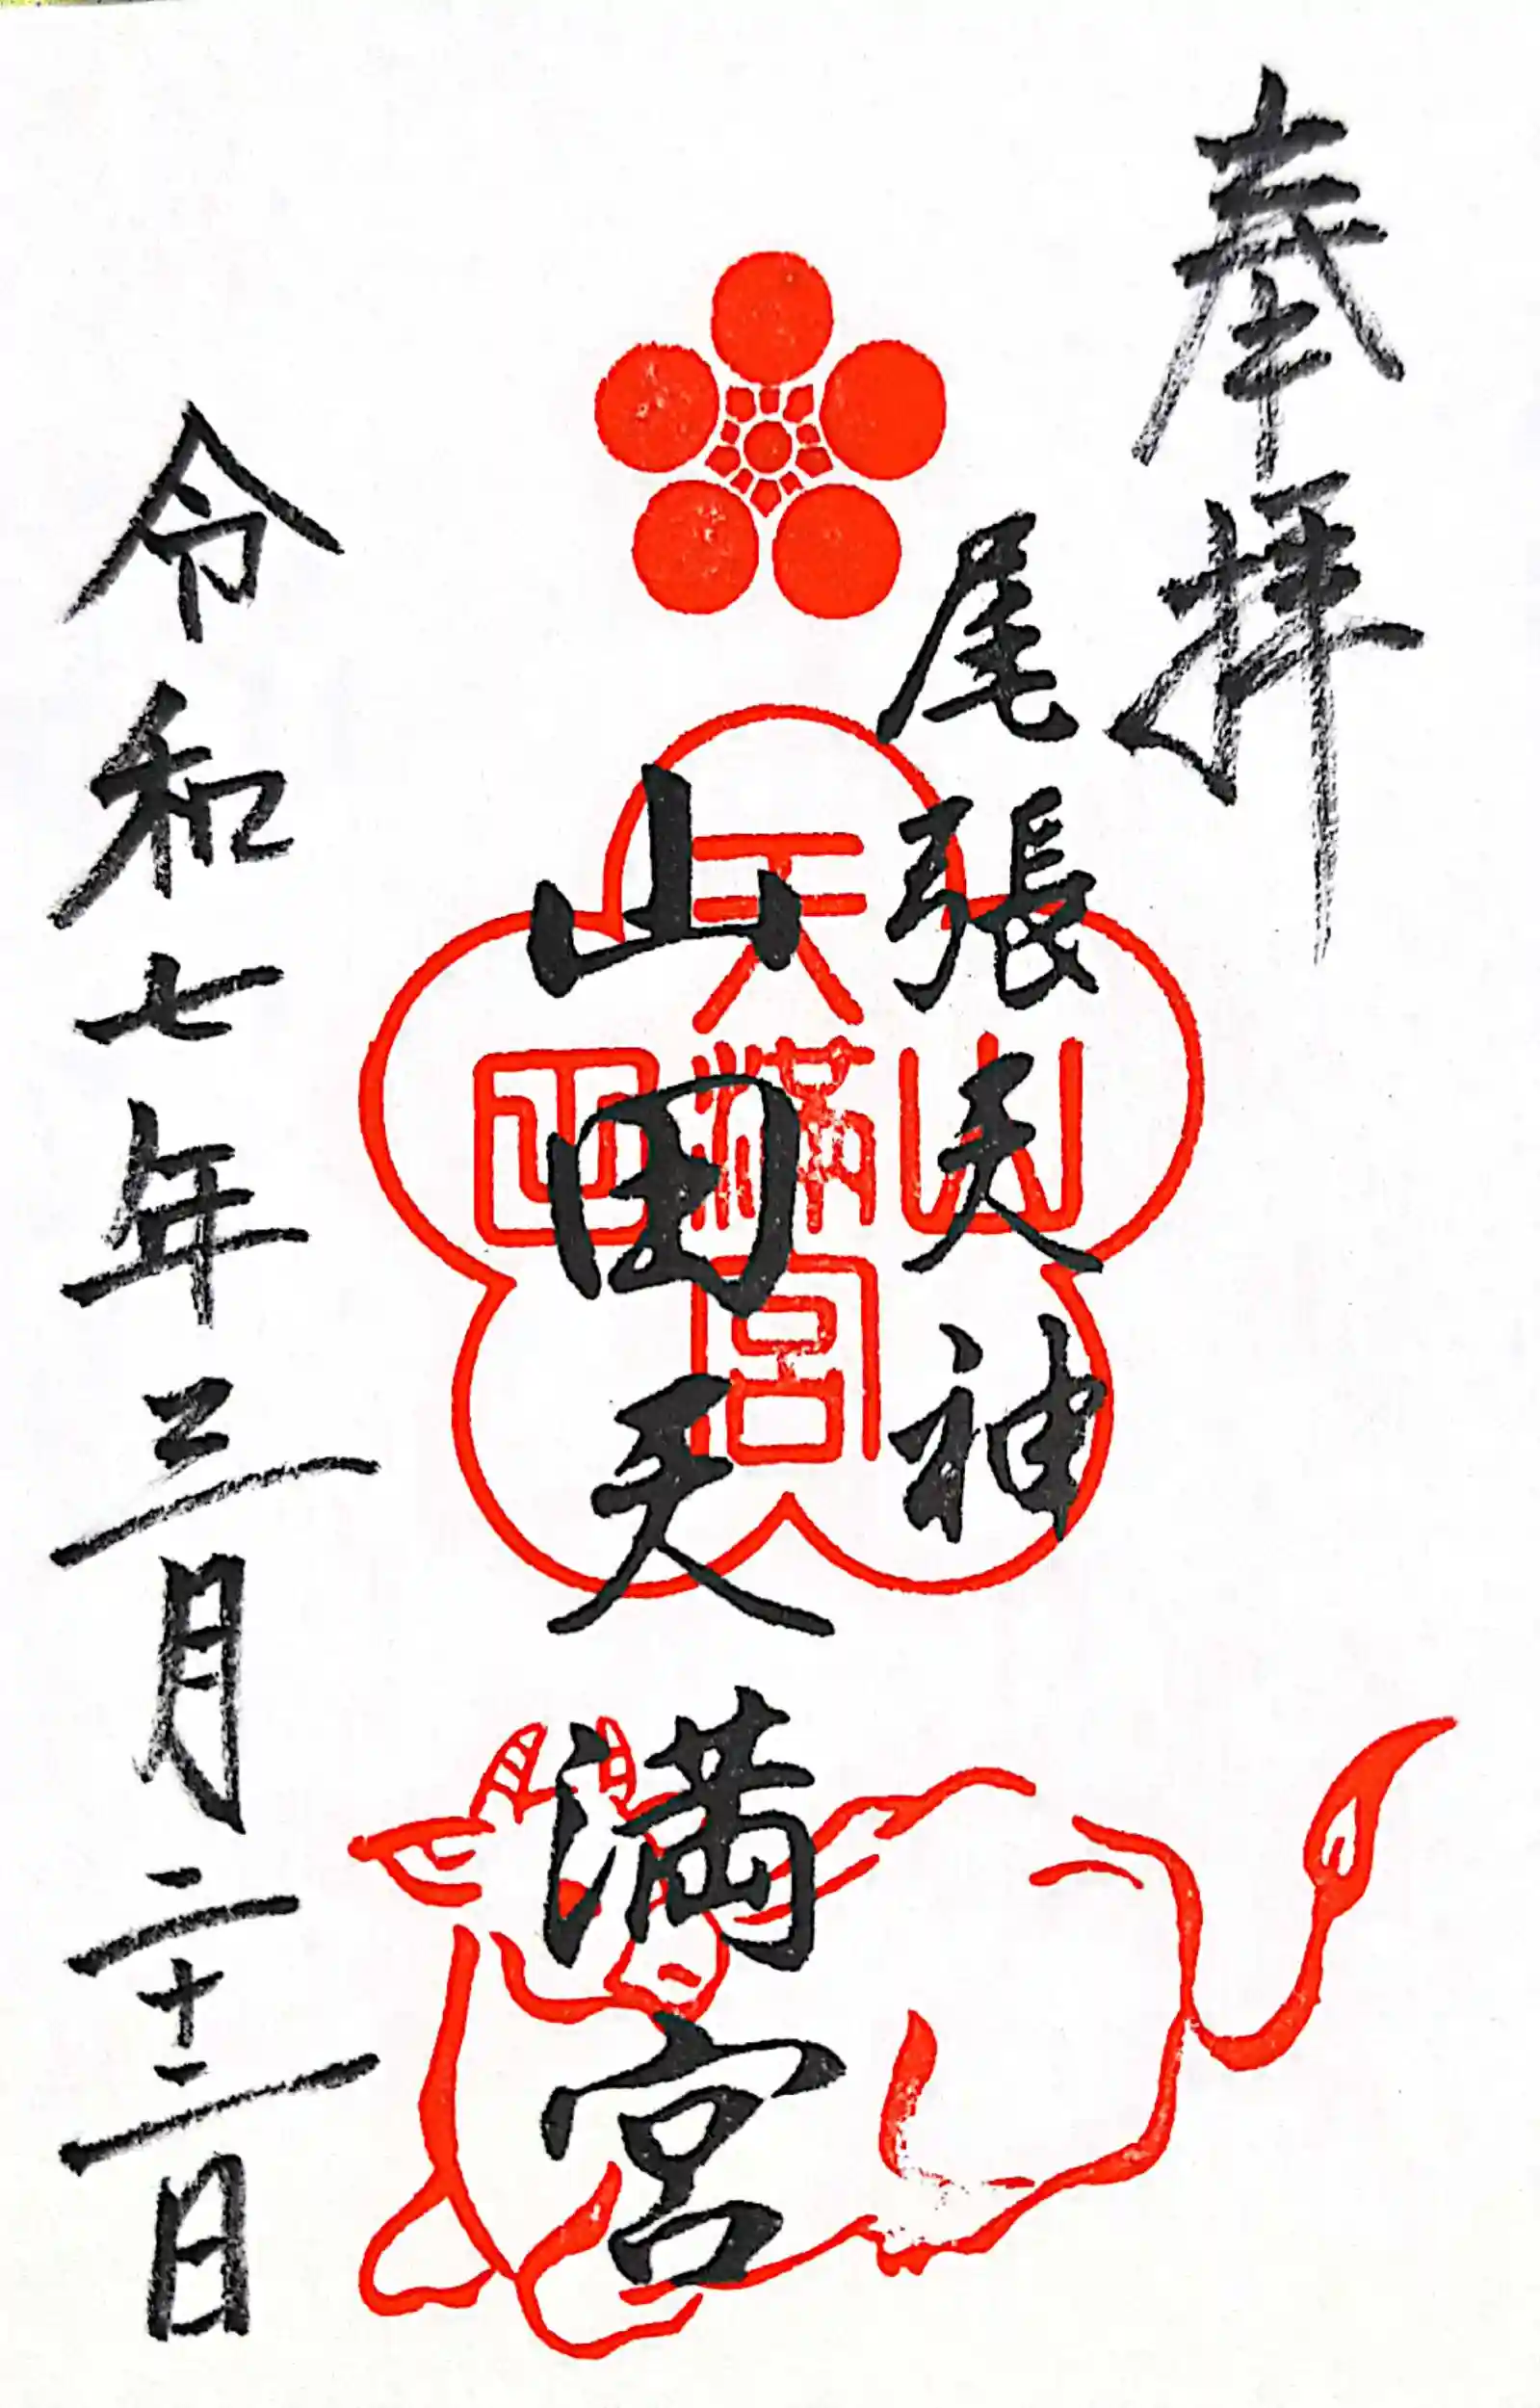 奉拝
尾張天神
山田天満宮
令和七年三月二十二日
山田
天満宮